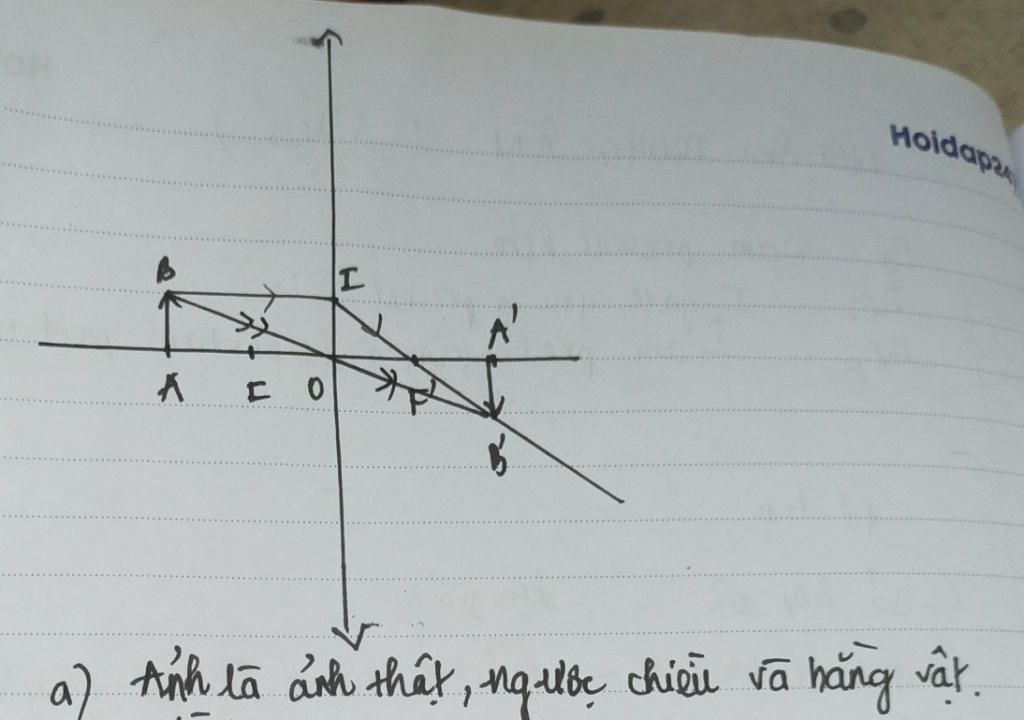 Hoidap24
B
I
A'
A
F
O
F'
B'
a) Ảnh là ảnh thật, ngược chiều và bằng vật.